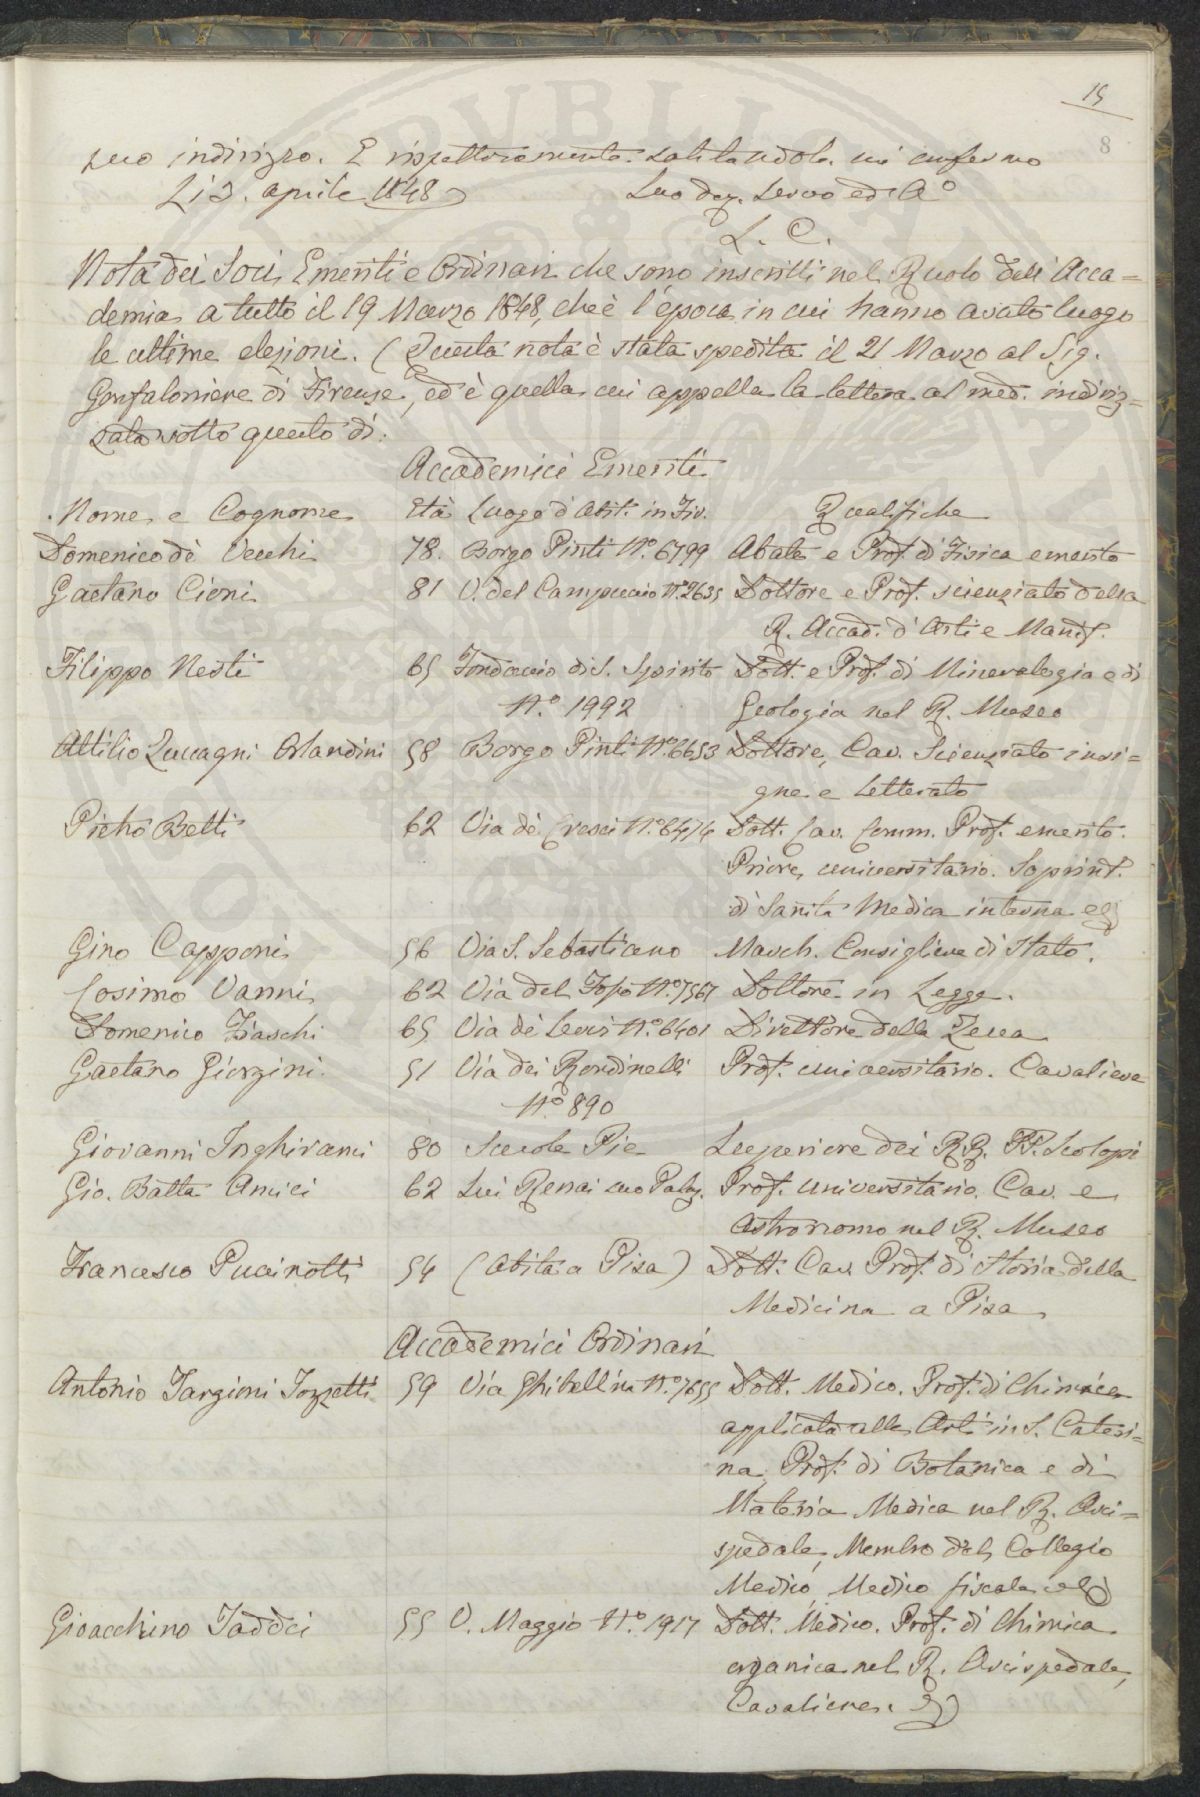 15
8
suo indirizzo. E rispettosamente salutandola mi confermo
Li 3. aprile 1848
Suo dev. Servo ed A°
L. C.
Nota dei Soci Emeriti e Ordinari che sono inscritti nel Ruolo dell' Acca=
demia a tutto il 19 Marzo 1848, che è l'epoca in cui hanno avuto luogo
le ultime elezioni. (Questa nota è stata spedita il 21 Marzo al Sig.
Gonfaloniere di Firenze, ed è quella cui appella la lettera al med. indiriz=
zata sotto questo dì.
Accademici Emeriti
Nome e Cognome Età Luogo d'abit. in Fir. Qualifiche
Domenico de' Vecchi 78. Borgo Pinti N.° 6799 Abate e Prof. di Fisica emerito
Gaetano Cioni 81 V. del Campuccio N.° 2635 Dottore e Prof. scienziato della
R. Accad. d'Arti e Manif.
Filippo Nesti 65 Fondaccio di S. Spirito Dott. e Prof. di Mineralogia e di
N.° 1992 Geologia nel R. Museo
Attilio Zuccagni Orlandini 58 Borgo Pinti N.° 6653 Dottore, Cav. Scienziato insi=
gne e Letterato
Pietro Betti 62 Via de' Cresci N.° Dott. Cav. Comm. Prof. emerito.
Priore universitario. Soprint.
di Sanità Medica interna
Gino Capponi 56 Via S. Sebastiano March. Consigliere di Stato.
Cosimo Vanni 62 Via del Fosso N.° 7567 Dottore in Legge.
Domenico Fiaschi 65 Via de' N.° 6401 Direttore della Zecca
Gaetano Giorgini 51 Via dei Rondinelli Prof. universitario. Cavaliere
N.° 890
Giovanni Inghirami 80 Scuole Pie Superiore dei RR. PP. Scolopi
Gio. Batta Amici 62 Sui Renai suo Palaz. Prof. universitario. Cav. e
Astronomo nel R. Museo
Francesco Puccinotti 54 (Abita a Pisa) Dott. Cav. Prof. di Storia della
Medicina a Pisa
Accademici Ordinari
Antonio Targioni Tozzetti 59 Via Ghibellina N.° 7655 Dott. Medico. Prof. di Chimica
applicata alle Arti in S. Cateri=
na, Prof. di Botanica e di
Materia Medica nel R. Arci=
spedale, Membro del Collegio
Medico, Medico fiscale
Gioacchino Taddei 55 V. Maggio N.° 1917 Dott. Medico. Prof. di Chimica
organica nel R. Arcispedale,
Cavaliere.